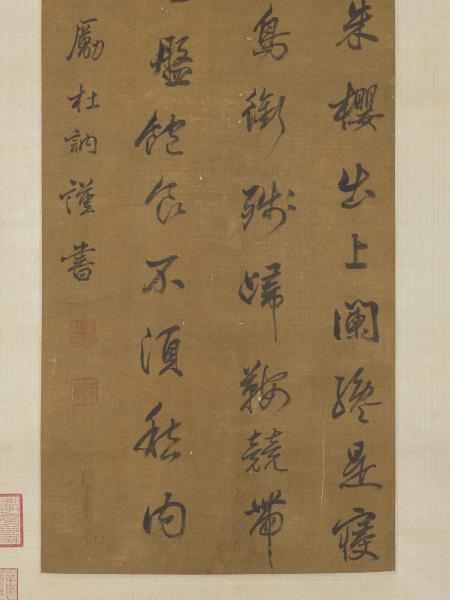 朱櫻出上闌纔是寢
鳥銜殘歸鞍競帶
盤飽食不須愁內
勵杜訥謹書